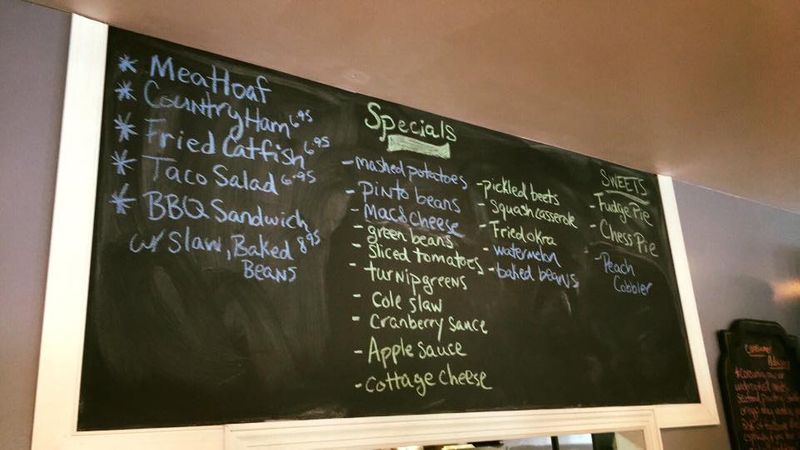 * Meatloaf
* Country Ham 6.95
* Fried Catfish 6.95
* Taco Salad 6.95
* BBQ Sandwich
w/ Slaw, Baked 8.95
Beans
Specials
- mashed potatoes
- pinto beans
- Mac & Cheese
- green beans
- sliced tomatoes
- turnip greens
- Cole slaw
- Cranberry Sauce
- Apple Sauce
- Cottage Cheese
- pickled beets
- squash casserole
- Fried okra
- watermelon
- baked beans
SWEETS
- Fudge Pie
- Chess Pie
- Peach
Cobbler